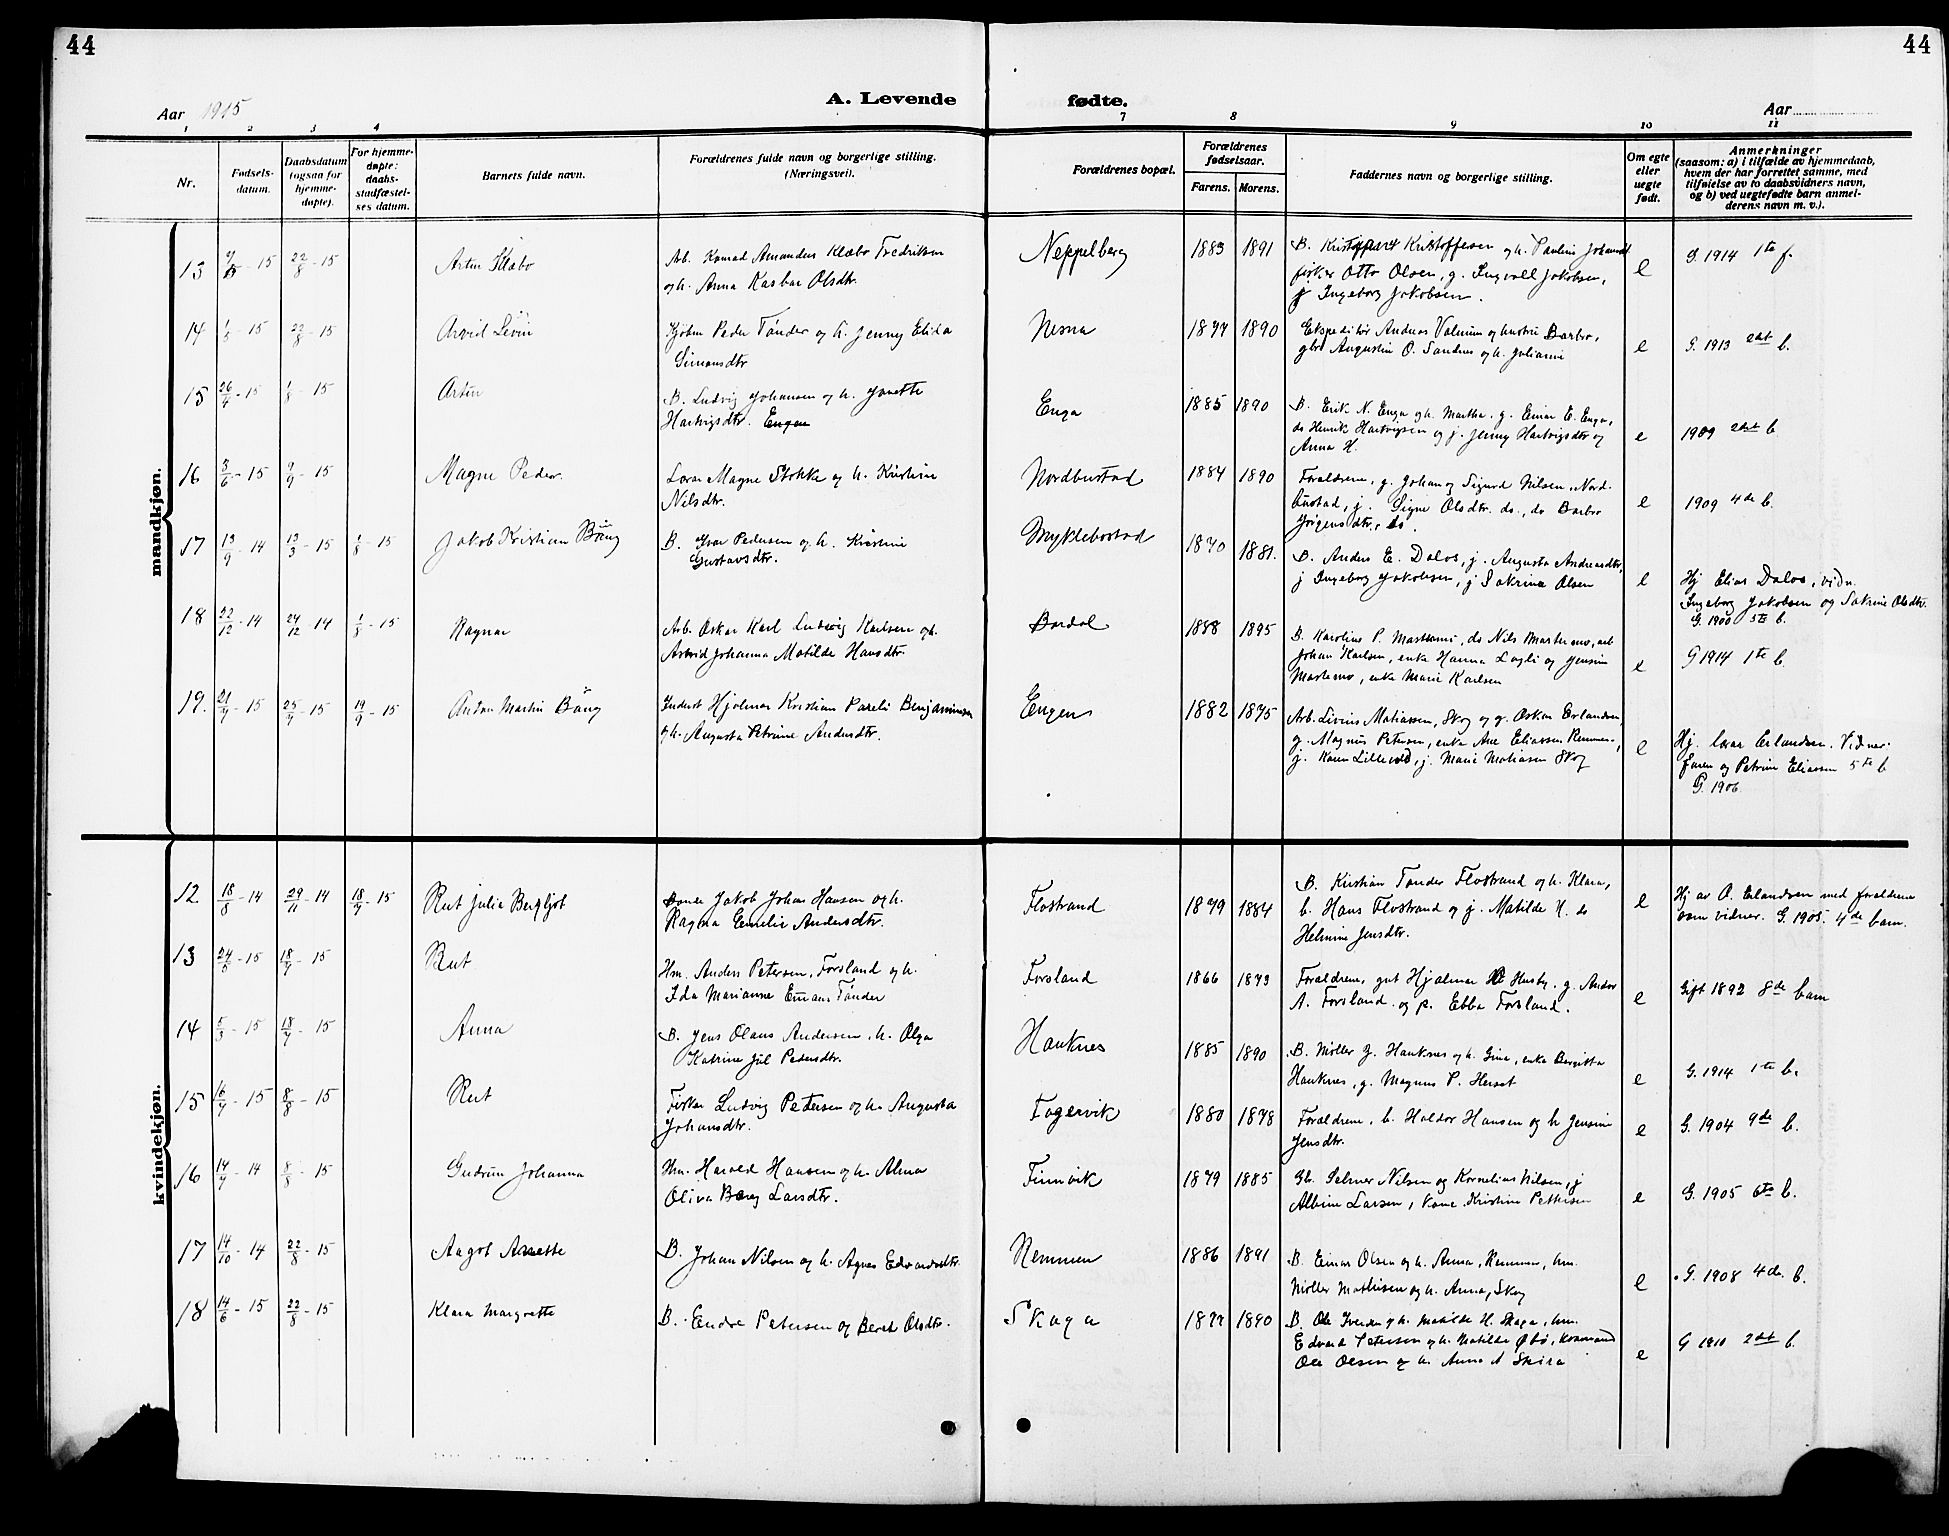 44
44
Aar 1915
A. Levende
fødte.
Aar
1 2 3 4 7 8 9 10 11
Nr.
Fødsels-
datum.
Daabsdatum
(ogsaa for
hjemme-
døpte).
For hjemme-
døpte:
daabs-
stadfæstel-
ses datum.
Barnets fulde navn.
Forældrenes fulde navn og borgerlige stilling.
(Næringsvei).
Forældrenes bopæl.
Forældrenes
fødselsaar.
Farens. Morens.
Faddernes navn og borgerlige stilling.
Om egte
eller
uegte
født.
Anmerkninger
(saasom: a) i tilfælde av hjemmedaab,
hvem der har forrettet samme, med
tilføielse av to daabsvidners navn,
og b) ved uegtefødte barn anmel-
derens navn m. v.).
mandkjøn.
13 22/8 - 15
Artur Klæbo
Arb. Konrad Amandus Klæbo Fredriksen
og h. Anna Kasbara Olsdtr.
Neppelberg
1883 1891
Kristoffersen og h. Pauline
fisker Otto Olsen, g. Ingvall Jakobsen,
j Ingeborg Jakobsen.
e
G. 1914 1ste f.
14 1/5 - 15 22/8 - 15
Arvid Levin
Kjøbm Peder Tønder og h. Jenny Elida
Simonsdtr
Nesna
1877 1890
Ekspeditør Andreas Valnum og hustru Barbro,
gbr Augustin O. Sandnes og h. Julianne
e
G. 1913 2det b.
15 26/4 - 15 1/8 - 15
Artur
B. Ludvig Johansen og h. Janette
Hartvigsdtr. Engen
Enga
1885 1890
B. Erik N. Enga og h. Martha. g. Einar E. Enga,
do Henrik Hartvigsen og j. Jenny Hartvigsdtr og
Anna H.
e
1909 2det b
16 3/6 - 15 9/9 - 15
Magne Peder.
Lærer Magne Stokke og h. Kristine
Nilsdtr.
Nordbustad
1884 1890
Forældrene, g. Johan og Sigurd Nilsen, Nord-
bustad, j. Signe Olsdtr. do., do Barbro
Jørgensdtr., do.
e
1909 4de b.
17 13/9 - 14 13/3 - 15 1/8 - 15
Jakob Kristian Bang
B. Ivar Pedersen og h. Kristine
Gustavsdtr.
Myklebostad
1870 1881.
B. Anders E. Dalos, j. Augusta Andreasdtr,
j Ingeborg Jakobsen, j Sakrine Olsen
e
Hj Elias Dalos, vidn.
Ingeborg Jakobsen og Sakrine Olsdtr.
G. 1900 5te b.
18 22/12 - 14 24/12 - 14 1/8 - 15
Ragnar
Arb. Oskar Karl Ludvig Karlsen og h.
Astrid Johanna Matilde Hansdtr.
Bardal
1888 1895
B. Karolius P. do Nils arb
Johan Karlsen, enke Hanna og Jensine
enke Marie Karlsen
e
G 1914 1te b.
19. 21/4 - 15 25/4 - 15 19/9 - 15
Anton Martin Bang
Inderst Hjalmar Kristian Pareli Benjaminsen
og h. Augusta Petrine Andersdtr.
Engen
1882 1875
Arb. Livius Matiassen, Skog og g. Oskar Erlandsen,
g. Magnus Petersen, enke Ane Eliassen Remmen,
j. Karen Lillevold, j. Marie Matiasen Skog
e
Hj. Erlandsen. Vidner.
faren og Petrine Eliassen 5te b
G. 1906
kvindekjøn.
12 18/8 - 14 29/11 - 14 18/7 - 15
Rut Julia Bergljot
Bonde Jakob Johan Hansen og h.
Ragna Emelie Andersdtr.
Flostrand
1879 1884
B. Kristian Tønder Flostrand og h. Klara,
b. Hans Flostrand og j. Matilde H. do
Helmine Jensdtr.
e
Hj av O. Erlandsen med forældrene
som vidner. G. 1905. 4de barn.
13 24/5 - 15 18/7 - 15
Rut
Hm. Anders Petersen, Forsland og h.
Ida Marianne Tønder
Forsland
1866 1873
Forældrene, gut Hjalmar Husby. g. Andor
A. Forsland og p. Ebba Forsland.
e
Gift 1892 8de barn
14 5/3 - 15 18/7 - 15
Anna
B. Jens Olaus Andersen, h. Olga
Katrine Jul Pedersdtr.
Hauknes
1885 1890
B. Møller J. Hauknes og h. Gine, enke Bergitta
Hauknes, g. Magnus P. Herset
e
G. 1914 1te b.
15 16/4 - 15 8/8 - 15
Rut
Fisker Ludvig Petersen og h. Augusta
Johansdtr.
Fagervik
1880 1878
Forældrene, b. Haldor Hansen og h Jensine
Jensdtr.
e
G. 1904 9de b.
16 14/9 - 14 8/8 - 15
Gudrun Johanna
Hm. Harald Hansen og h. Alma
Oliva Berg Larsdtr.
Finnvik
1879 1885
Gb. Selmer Nilsen og Kornelius Nilsen, j
Albine Larsen, kone Kristine Pettersen
e
G. 1905 6te b.
17 14/10 - 14 22/8 - 15
Aagot Anette
B. Johan Nilsen og h. Agnes Edvardsdtr.
Remmen
1886 1891
B. Einar Olsen og h. Anna, Remmen, hm.
Møller Mathisen og h. Anna, Skog
e
G. 1908 4de b.
18 14/6 - 15 22/8 - 15
Klara Margrette
B. Endre Petersen og Beret Olsdtr.
Skaga
1877 1890
B. Ole og h. Matilde H. Skaga, hm.
Edvard Petersen og h. Matilde Øbø,
Ole Olsen og h. Anna A
e
G 1910 2det b.